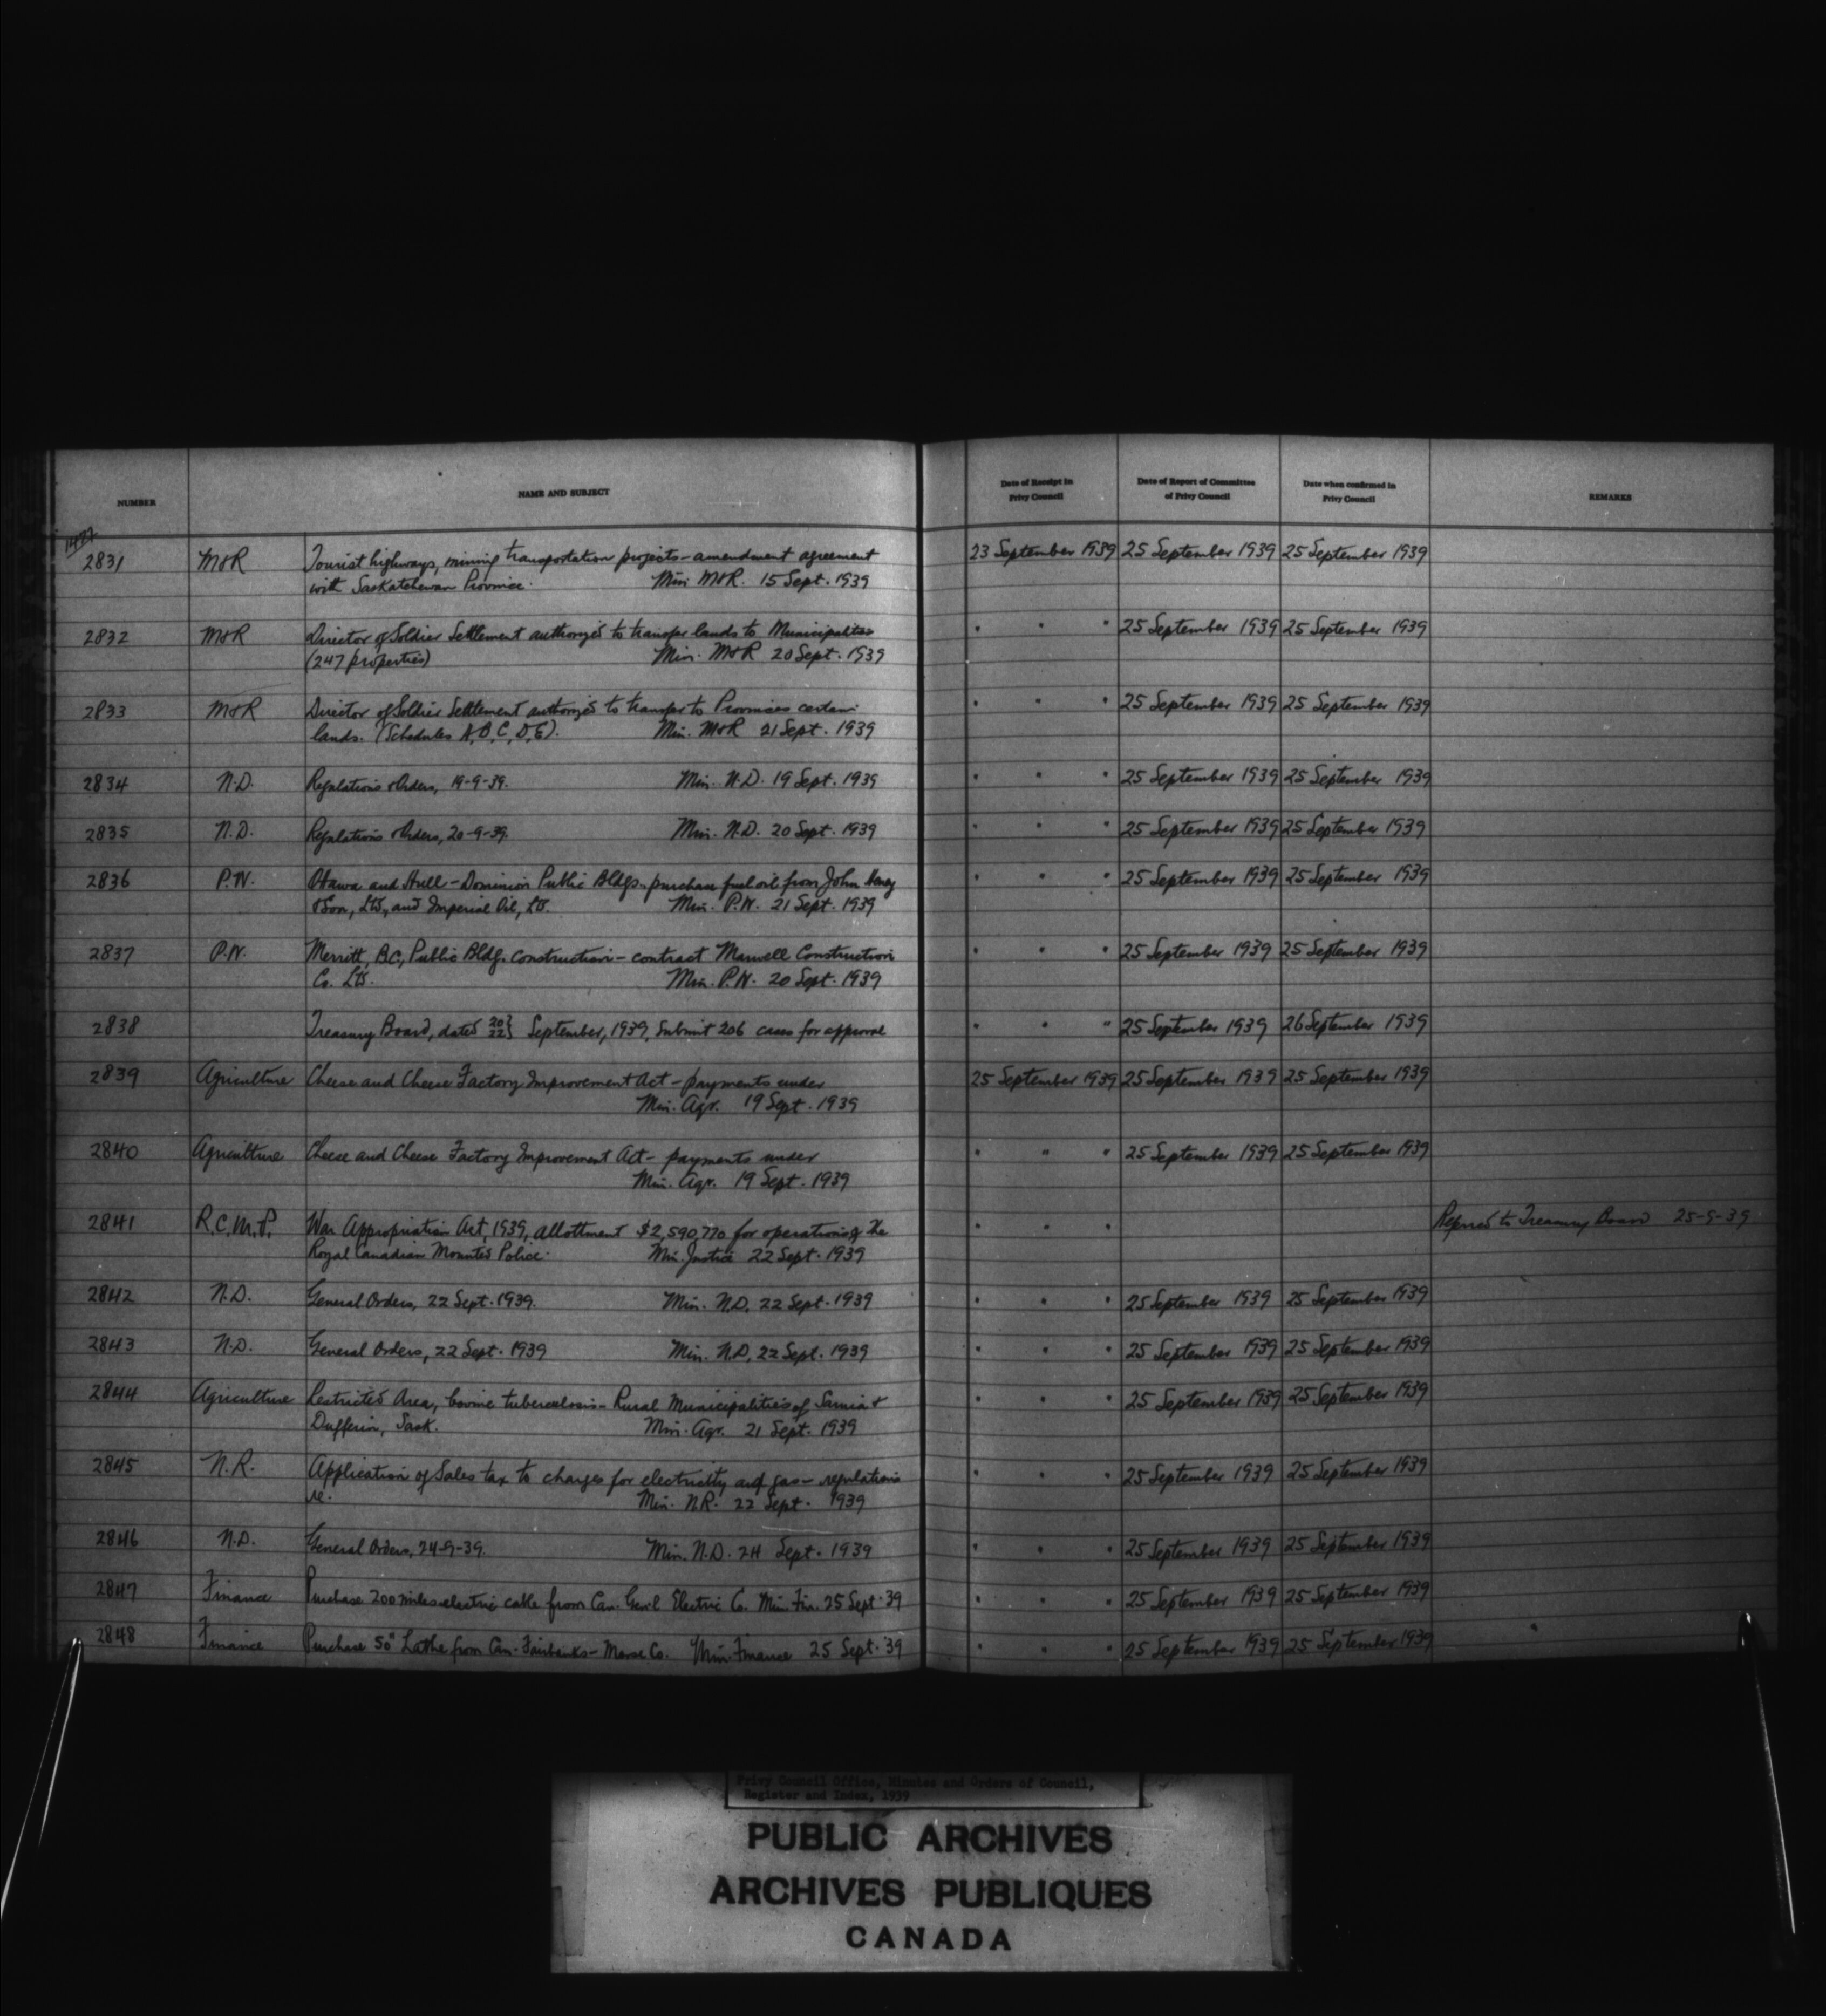 NUMBER NAME AND SUBJECT Date of Receipt in Privy Council Date of Report of Committee of Privy Council Date when confirmed in Privy Council REMARKS
2831 M&R Tourist highways, mining transportation projects - amendment agreement 23 September 1939 25 September 1939 25 September 1939
with Saskatchewan Province. Min. M&R. 15 Sept. 1939
2832 M&R Director of Soldier Settlement authorized to transfer lands to Municipalities " " " 25 September 1939 25 September 1939
(247 properties) Min. M&R 20 Sept. 1939
2833 M&R Director of Soldier Settlement authorized to transfer to Provinces certain " " " 25 September 1939 25 September 1939
lands. (Schedules A, B, C, D, E). Min. M&R 21 Sept. 1939
2834 N.D. Regulations & Orders, 19-9-39. Min. N.D. 19 Sept. 1939 " " " 25 September 1939 25 September 1939
2835 N.D. Regulations & Orders, 20-9-39. Min. N.D. 20 Sept. 1939 " " " 25 September 1939 25 September 1939
2836 P.W. Ottawa and Hull - Dominion Public Bldgs. purchase fuel oil from John Heney " " " 25 September 1939 25 September 1939
& Son, Ltd., and Imperial Oil, Ltd. Min. P.W. 21 Sept. 1939
2837 P.W. Merritt, B.C., Public Bldg. construction - contract Maxwell Construction " " " 25 September 1939 25 September 1939
Co. Ltd. Min. P.W. 20 Sept. 1939
2838 Treasury Board, dated 20 22} September, 1939, submit 206 cases for approval " " " 25 September 1939 26 September 1939
2839 Agriculture Cheese and Cheese Factory Improvement Act - payments under 25 September 1939 25 September 1939 25 September 1939
Min. Agr. 19 Sept. 1939
2840 Agriculture Cheese and Cheese Factory Improvement Act - payments under " " " 25 September 1939 25 September 1939
Min. Agr. 19 Sept. 1939
2841 R.C.M.P. War Appropriation Act, 1939, allottment $2,590,770 for operations of the " " " Referred to Treasury Board 25-9-39
Royal Canadian Mounted Police. Min. Justice 22 Sept. 1939
2842 N.D. General Orders, 22 Sept. 1939. Min. N.D. 22 Sept. 1939 " " " 25 September 1939 25 September 1939
2843 N.D. General Orders, 22 Sept. 1939 Min. N.D. 22 Sept. 1939 " " " 25 September 1939 25 September 1939
2844 Agriculture Restricted Area, bovine tuberculosis - Rural Municipalities of Sarnia & " " " 25 September 1939 25 September 1939
Dufferin, Sask. Min. Agr. 21 Sept. 1939
2845 N.R. Application of Sales tax to charges for electricity and gas - regulations " " " 25 September 1939 25 September 1939
re. Min. N.R. 22 Sept. 1939
2846 N.D. General Orders, 24-9-39. Min. N.D. 24 Sept. 1939 " " " 25 September 1939 25 September 1939
2847 Finance Purchase 200 miles electric cable from Can. Gen'l Electric Co. Min. Fin. 25 Sept. 39 " " " 25 September 1939 25 September 1939
2848 Finance Purchase 50" Lathe from Can. Fairbanks-Morse Co. Min. Finance 25 Sept. '39 " " " 25 September 1939 25 September 1939
Privy Council Office, Minutes and Orders of Council,
Register and Index, 1939
PUBLIC ARCHIVES
ARCHIVES PUBLIQUES
CANADA